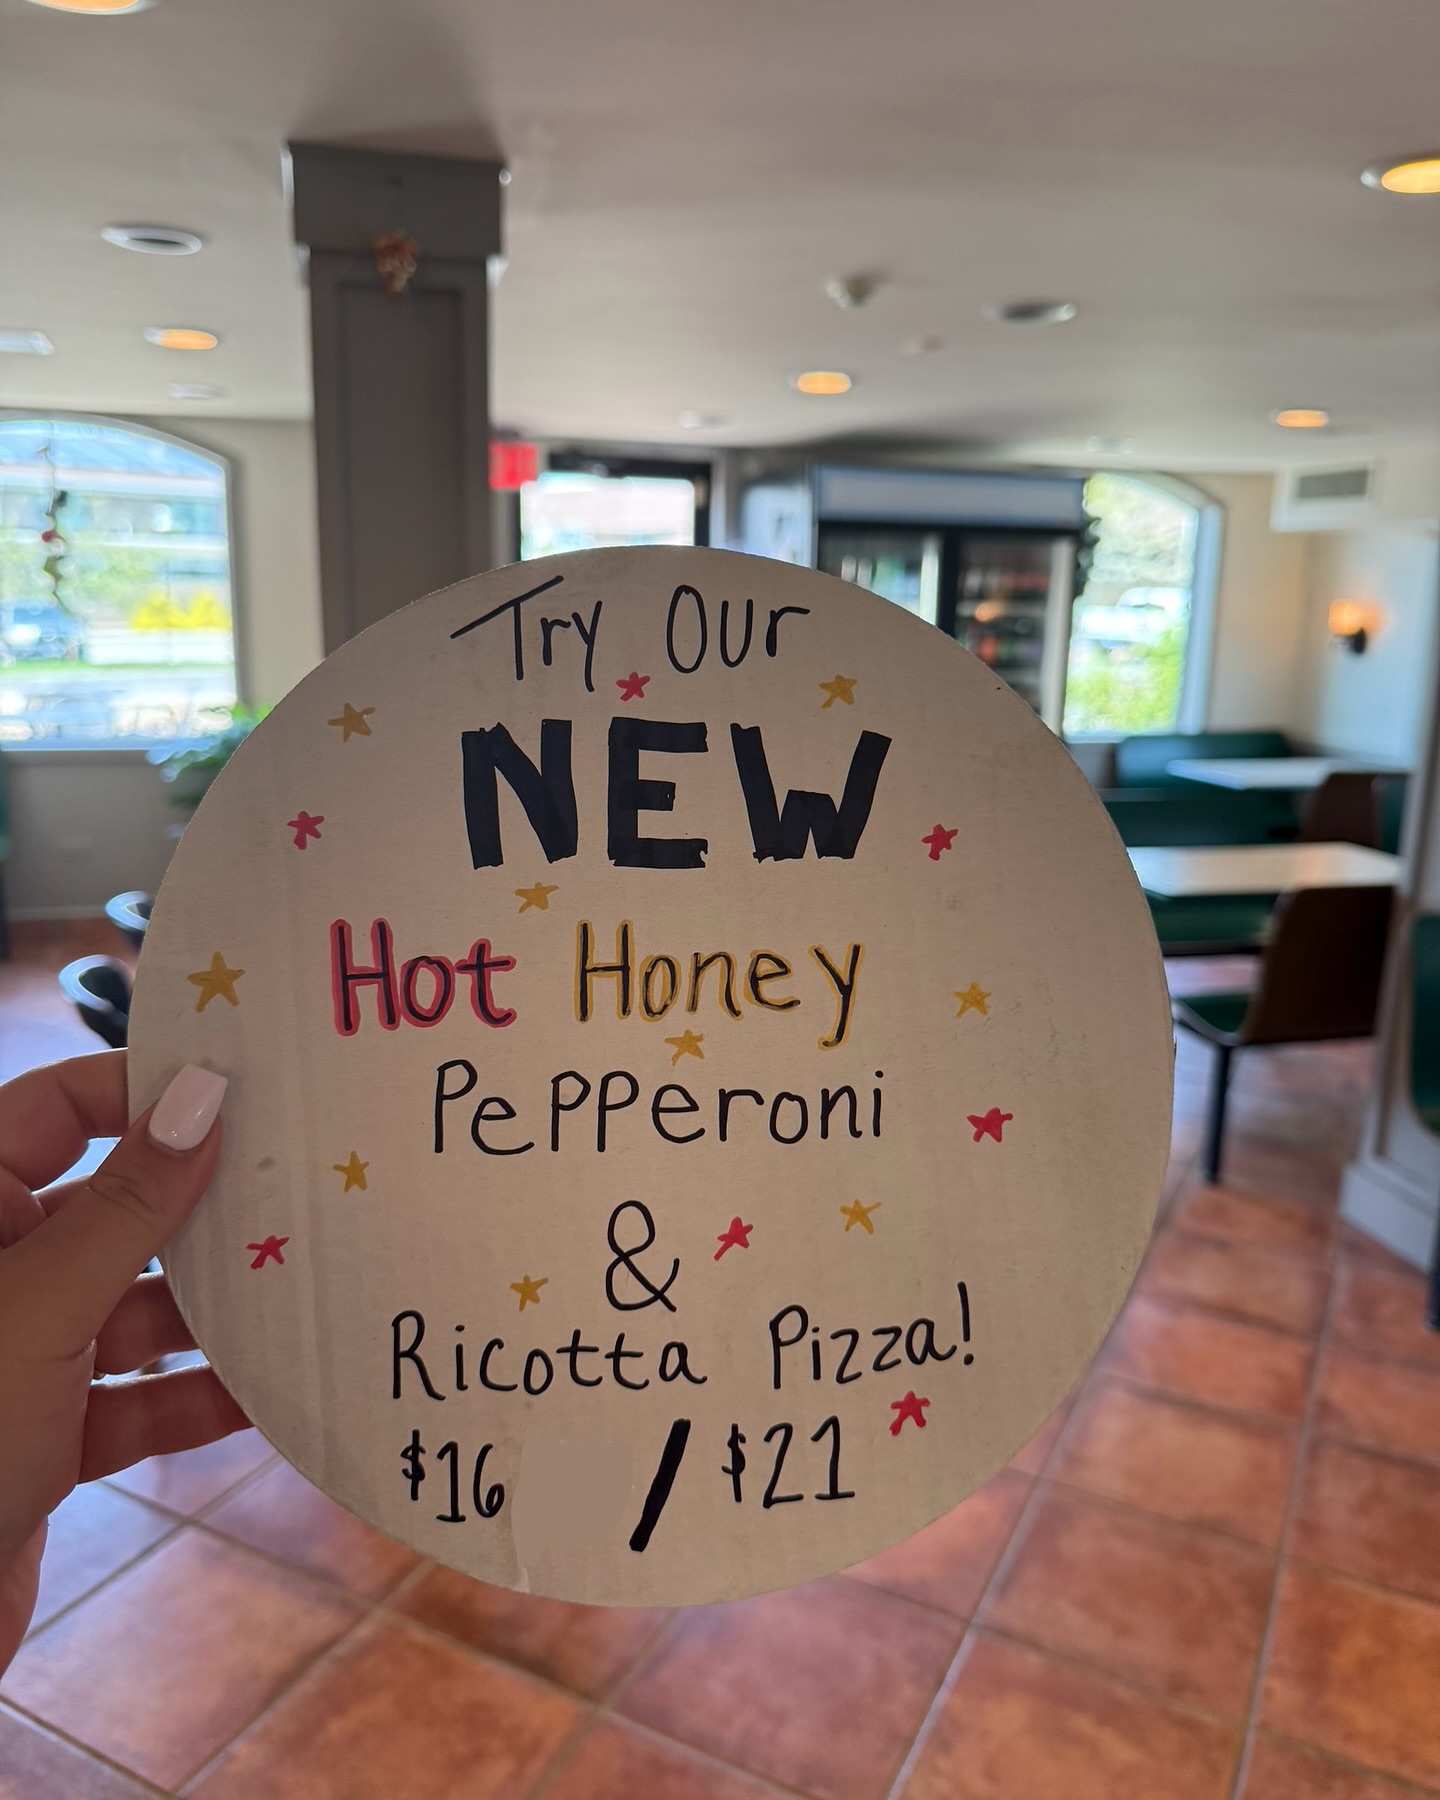 Try Our
NEW
Hot Honey
Pepperoni
&
Ricotta Pizza!
$16 / $21